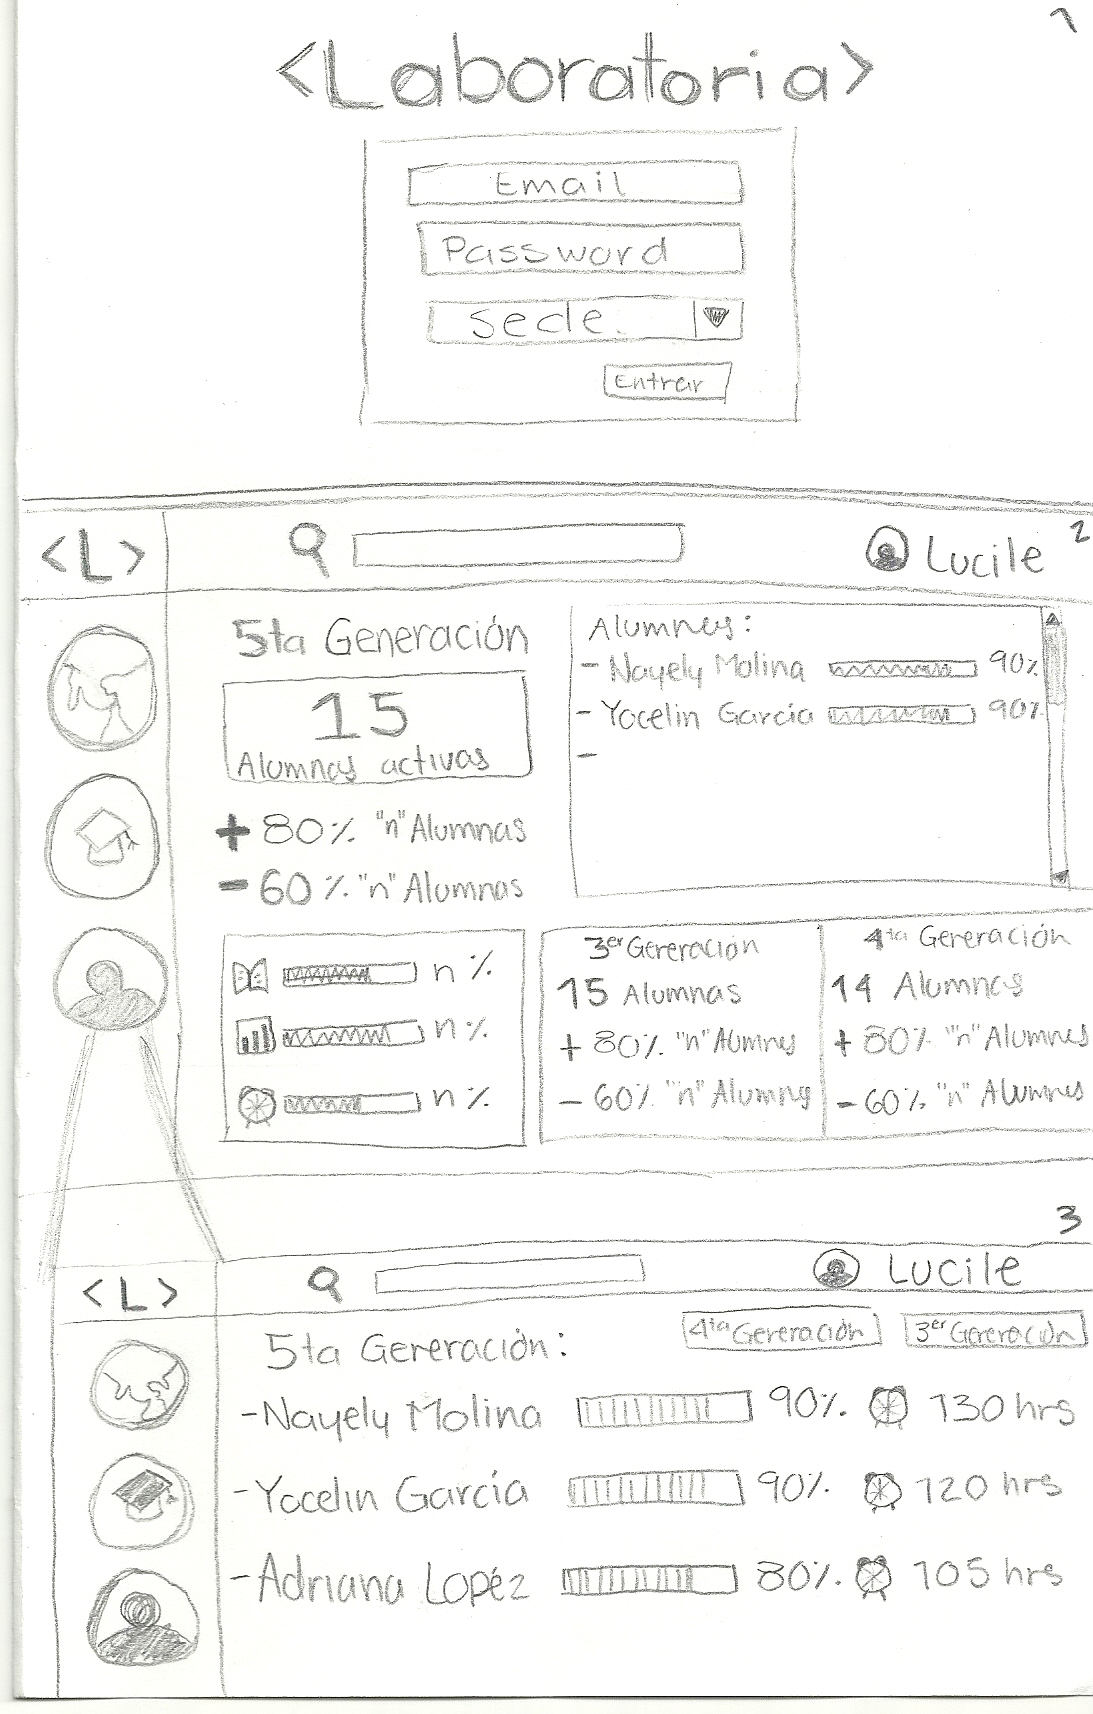 1
<Laboratoria>
Email
Password
Sede.
Entrar
2
<L>
Lucile
5ta Generación
15
Alumnas activas
+ 80% "n" Alumnas
- 60% "n" Alumnas
Alumnas:
- Nayely Molina 90%
- Yocelin García 90%
-
n %
n %
n %
3er Gereración
15 Alumnas
+ 80% "n" Alumnas
- 60% "n" Alumnas
4ta Gereración
14 Alumnas
+ 80% "n" Alumnas
- 60% "n" Alumnas
3
<L>
Lucile
5ta Gereración:
4ta Gereración
3er Gereración
-Nayely Molina 90% 130 hrs
-Yocelin García 90% 120 hrs
-Adriana Lopéz 80% 105 hrs